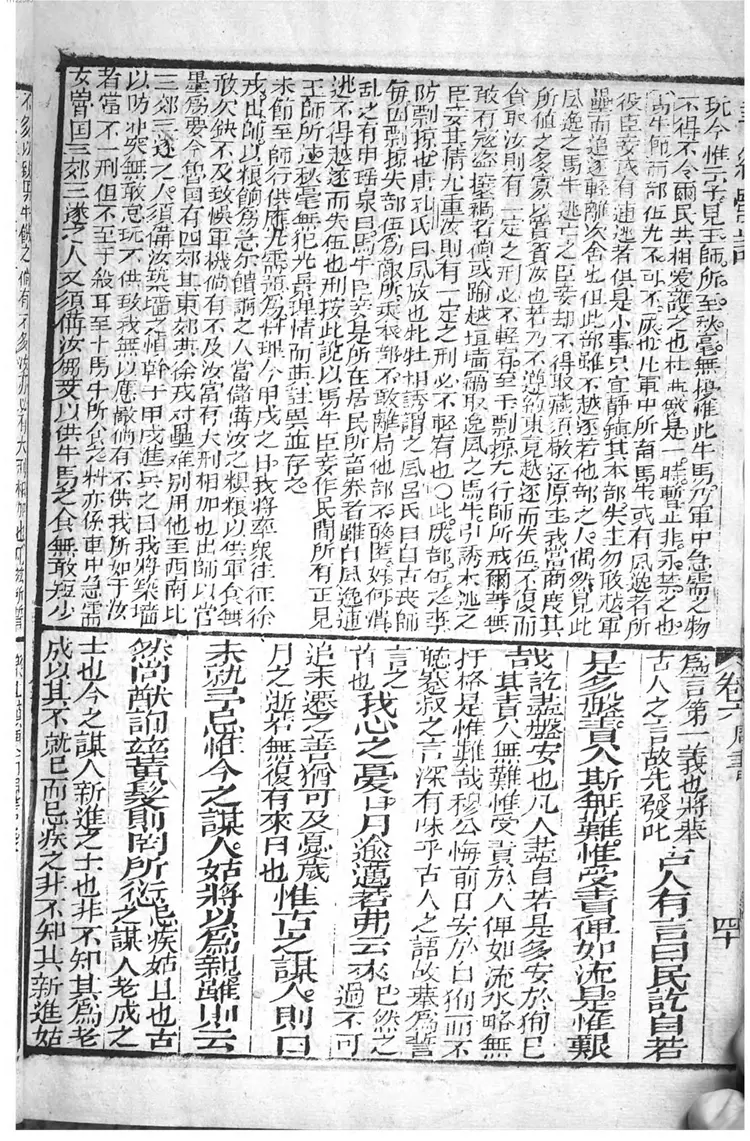 玩今惟示子見王師所至秋毫無擾惟此牛馬乃軍中急需之物
不得不令爾民共相愛護之也杜
也軍中所畜馬牛或有風逸者所
役臣妾或有逋逃者俱是小事只宜靜鎮其本部失主勿敢越軍
壘而追逐輕離次舍也但此部雖不越逐若他部之人偶然見此
風逸之馬牛逃亡之臣妾却不得收藏須敬還原主我當商度其
所値之多寡以賞賚汝也若乃不遵約束竟越逐而失伍不復而
貪取汝則有一定之刑必不輕宥至于剽掠尤行師所戒爾等無
敢有寇攘者倘或踰越垣墻竊取逸風之馬牛引誘未逃之
臣妾其情尤重汝則有一定之刑必不輕宥也○此嚴部伍之事
防剽掠也唐孔氏曰風放也牝牡相誘謂之風呂氏曰自古喪師
每因剽掠失部伍爲敵所乘根部不敢離局他部不敢匿姦何潰
亂之有申瑶泉曰馬牛臣妾是所在居民所畜養者雖自風逸逋
逃不得越逐而失伍也刑按此說以馬牛臣妾作民間所有正見
王師所過秋毫無犯尤爲得情而與註異並存之
未節至師行供應尤需預爲料理今甲戌之日我將率衆往征徐
戎出師以糧餉爲急爾饋餉之人當儲備汝之糗糧以供軍食無
敢欠缺不及致悞軍機倘有不及汝當有大刑相加也出師以當
壘爲要今魯国有四郊其東郊與徐戎对壘难别用他至西南北
三郊三遂之人須備汝築墻之楨幹于甲戌進兵之日我將築墻
以防衝突無敢怠玩不供致我無以應敵倘有不供我所加于汝
者當不一刑但不至于殺耳至于馬牛所食芻料亦係軍中急需
女魯国三郊三遂之人又須備汝芻茭以供牛馬之食無敢短少
爲言第一義也將舉
古人之言故先發此 古人有言曰民訖自若
是多盤責人斯無難惟受責俾如流是惟艱
哉 訖盡盤安也凡人盡自若是多安於徇己
其責人無難惟受責於人俾如流水略無
扞格是惟難哉穆公悔前日安於自徇而不
聽蹇叔之言深有味乎古人之語故舉爲誓
言之
首也 我心之憂日月逾邁若弗云來 已然之
過不可
追未遷之善猶可及憂歲
月之逝若無復有來日也 惟古之謀人則曰
未就予忌惟今之謀人姑將以爲親雖則云
然尚猷詢茲黃髮則罔所愆 忌疾姑且也古
之謀人老成之
士也今之謀人新進之士也非不知其爲老
成以其不就已而忌疾之非不知其新進姑
卷六 周書
四十